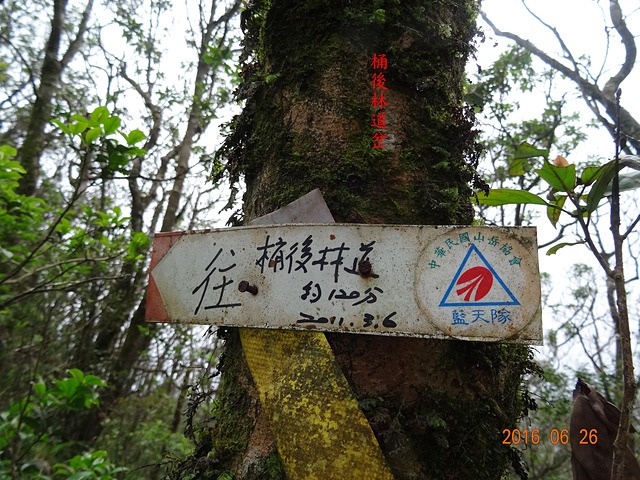 桶後林道岔
往 桶後林道
約120分
2011.3.6
中華民國山岳協會
藍天隊
2016 06 26